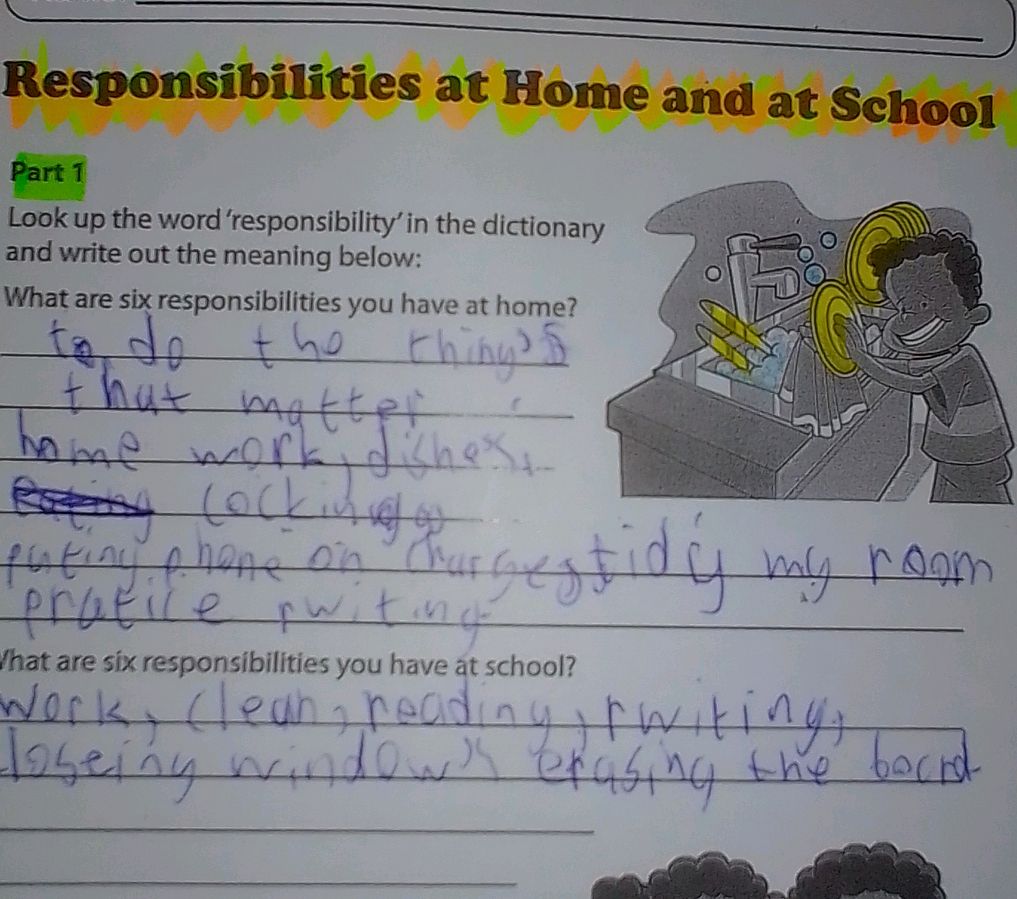 Responsibilities at Home and at School
Part 1
Look up the word 'responsibility' in the dictionary
and write out the meaning below:
What are six responsibilities you have at home?
to do the thing's
that matter
home work, dishes,
cocking
puting phone on charge, tidy my room
pratice rwiting
What are six responsibilities you have at school?
work, clean, reading, rwiting,
loseing window's erasing the board